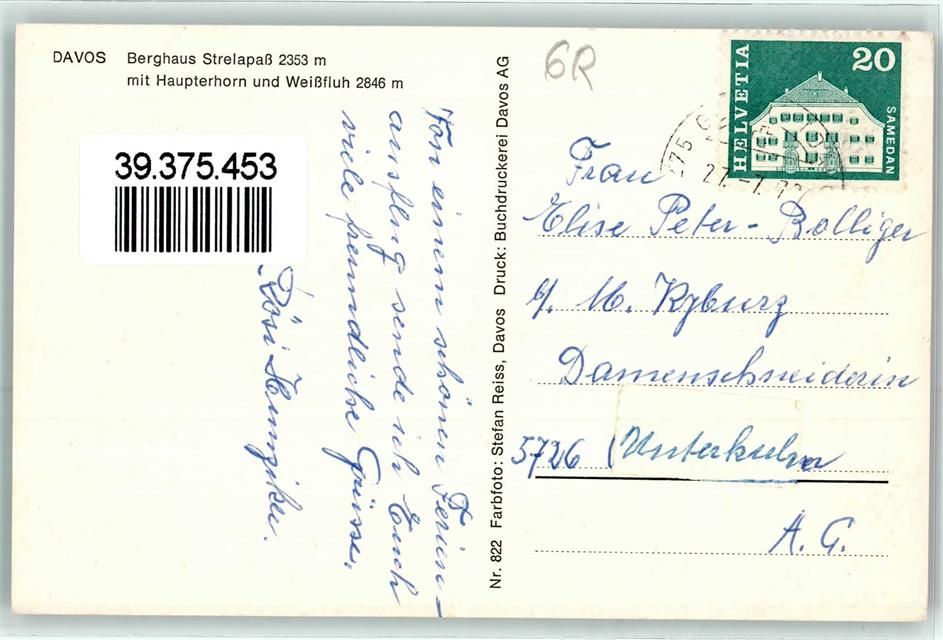 DAVOS Berghaus Strelapaß 2353 m
mit Haupterhorn und Weißfluh 2846 m
39.375.453
Von einem schönen Ferien-
ausflug sende ich Euch
viele freundliche Grüsse.
Rösi Hunziker.
Nr. 822 Farbfoto: Stefan Reiss, Davos Druck: Buchdruckerei Davos AG
6R
HELVETIA
20
SAMEDAN
27.-7.
Frau
Elise Peter-Bolliger
b/ M. Kyburz
Damenschneiderin
5726 Unterkulm
A.G.